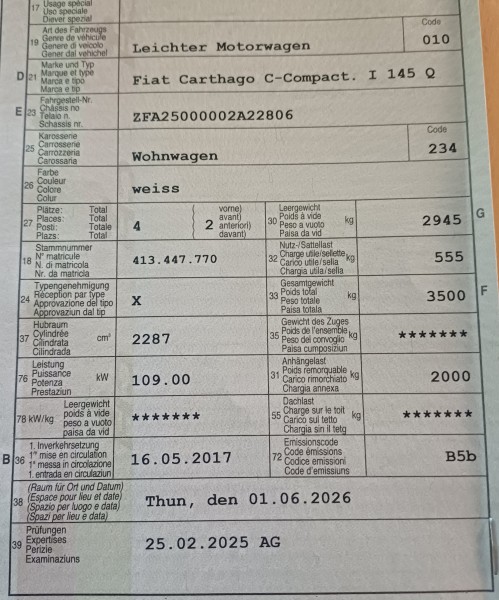 17 Usage spécial
Uso speciale
Diever spezial
19 Art des Fahrzeugs
Genre de véhicule
Genere di veicolo
Gener dal vehichel
Leichter Motorwagen
Code
010
D 21 Marke und Typ
Marque et type
Marca e tipo
Marca e tip
Fiat Carthago C-Compact. I 145 Q
E 23 Fahrgestell-Nr.
Châssis no
Telaio n.
Schassis nr.
ZFA25000002A22806
25 Karosserie
Carrosserie
Carrozzeria
Carossaria
Wohnwagen
Code
234
26 Farbe
Couleur
Colore
Colur
weiss
27 Plätze: Total
Places: Total
Posti: Totale
Plazs: Total
4
( vorne)
( avant)
2 anteriori)
( davant)
30 Leergewicht
Poids à vide
Peso a vuoto
Paisa da vid
kg
2945
G
18 Stammnummer
N° matricule
N. di matricola
Nr. da matricla
413.447.770
32 Nutz-/Sattellast
Charge utile/sellette
Carico utile/sella
Chargia utila/sella
kg
555
24 Typengenehmigung
Réception par type
Approvazione del tipo
Approvaziun dal tip
X
33 Gesamtgewicht
Poids total
Peso totale
Paisa totala
kg
3500
F
37 Hubraum
Cylindrée
Cilindrata
Cilindrada
cm³
2287
35 Gewicht des Zuges
Poids de l'ensemble
Peso del convoglio
Paisa cumposiziun
kg
*******
76 Leistung
Puissance
Potenza
Prestaziun
kW
109.00
31 Anhängelast
Poids remorquable
Carico rimorchiato
Chargia annexa
kg
2000
78 kW/kg
Leergewicht
poids à vide
peso a vuoto
paisa da vid
*******
55 Dachlast
Charge sur le toit
Carico sul tetto
Chargia sin il tetg
kg
*******
B 36 1. Inverkehrsetzung
1re mise en circulation
1a messa in circolazione
1. entrada en circulaziun
16.05.2017
72 Emissionscode
Code émissions
Codice emissioni
Code d'emissiuns
B5b
38 (Raum für Ort und Datum)
(Espace pour lieu et date)
(Spazio per luogo e data)
(Spazi per lieu e data)
Thun, den 01.06.2026
39 Prüfungen
Expertises
Perizie
Examinaziuns
25.02.2025 AG